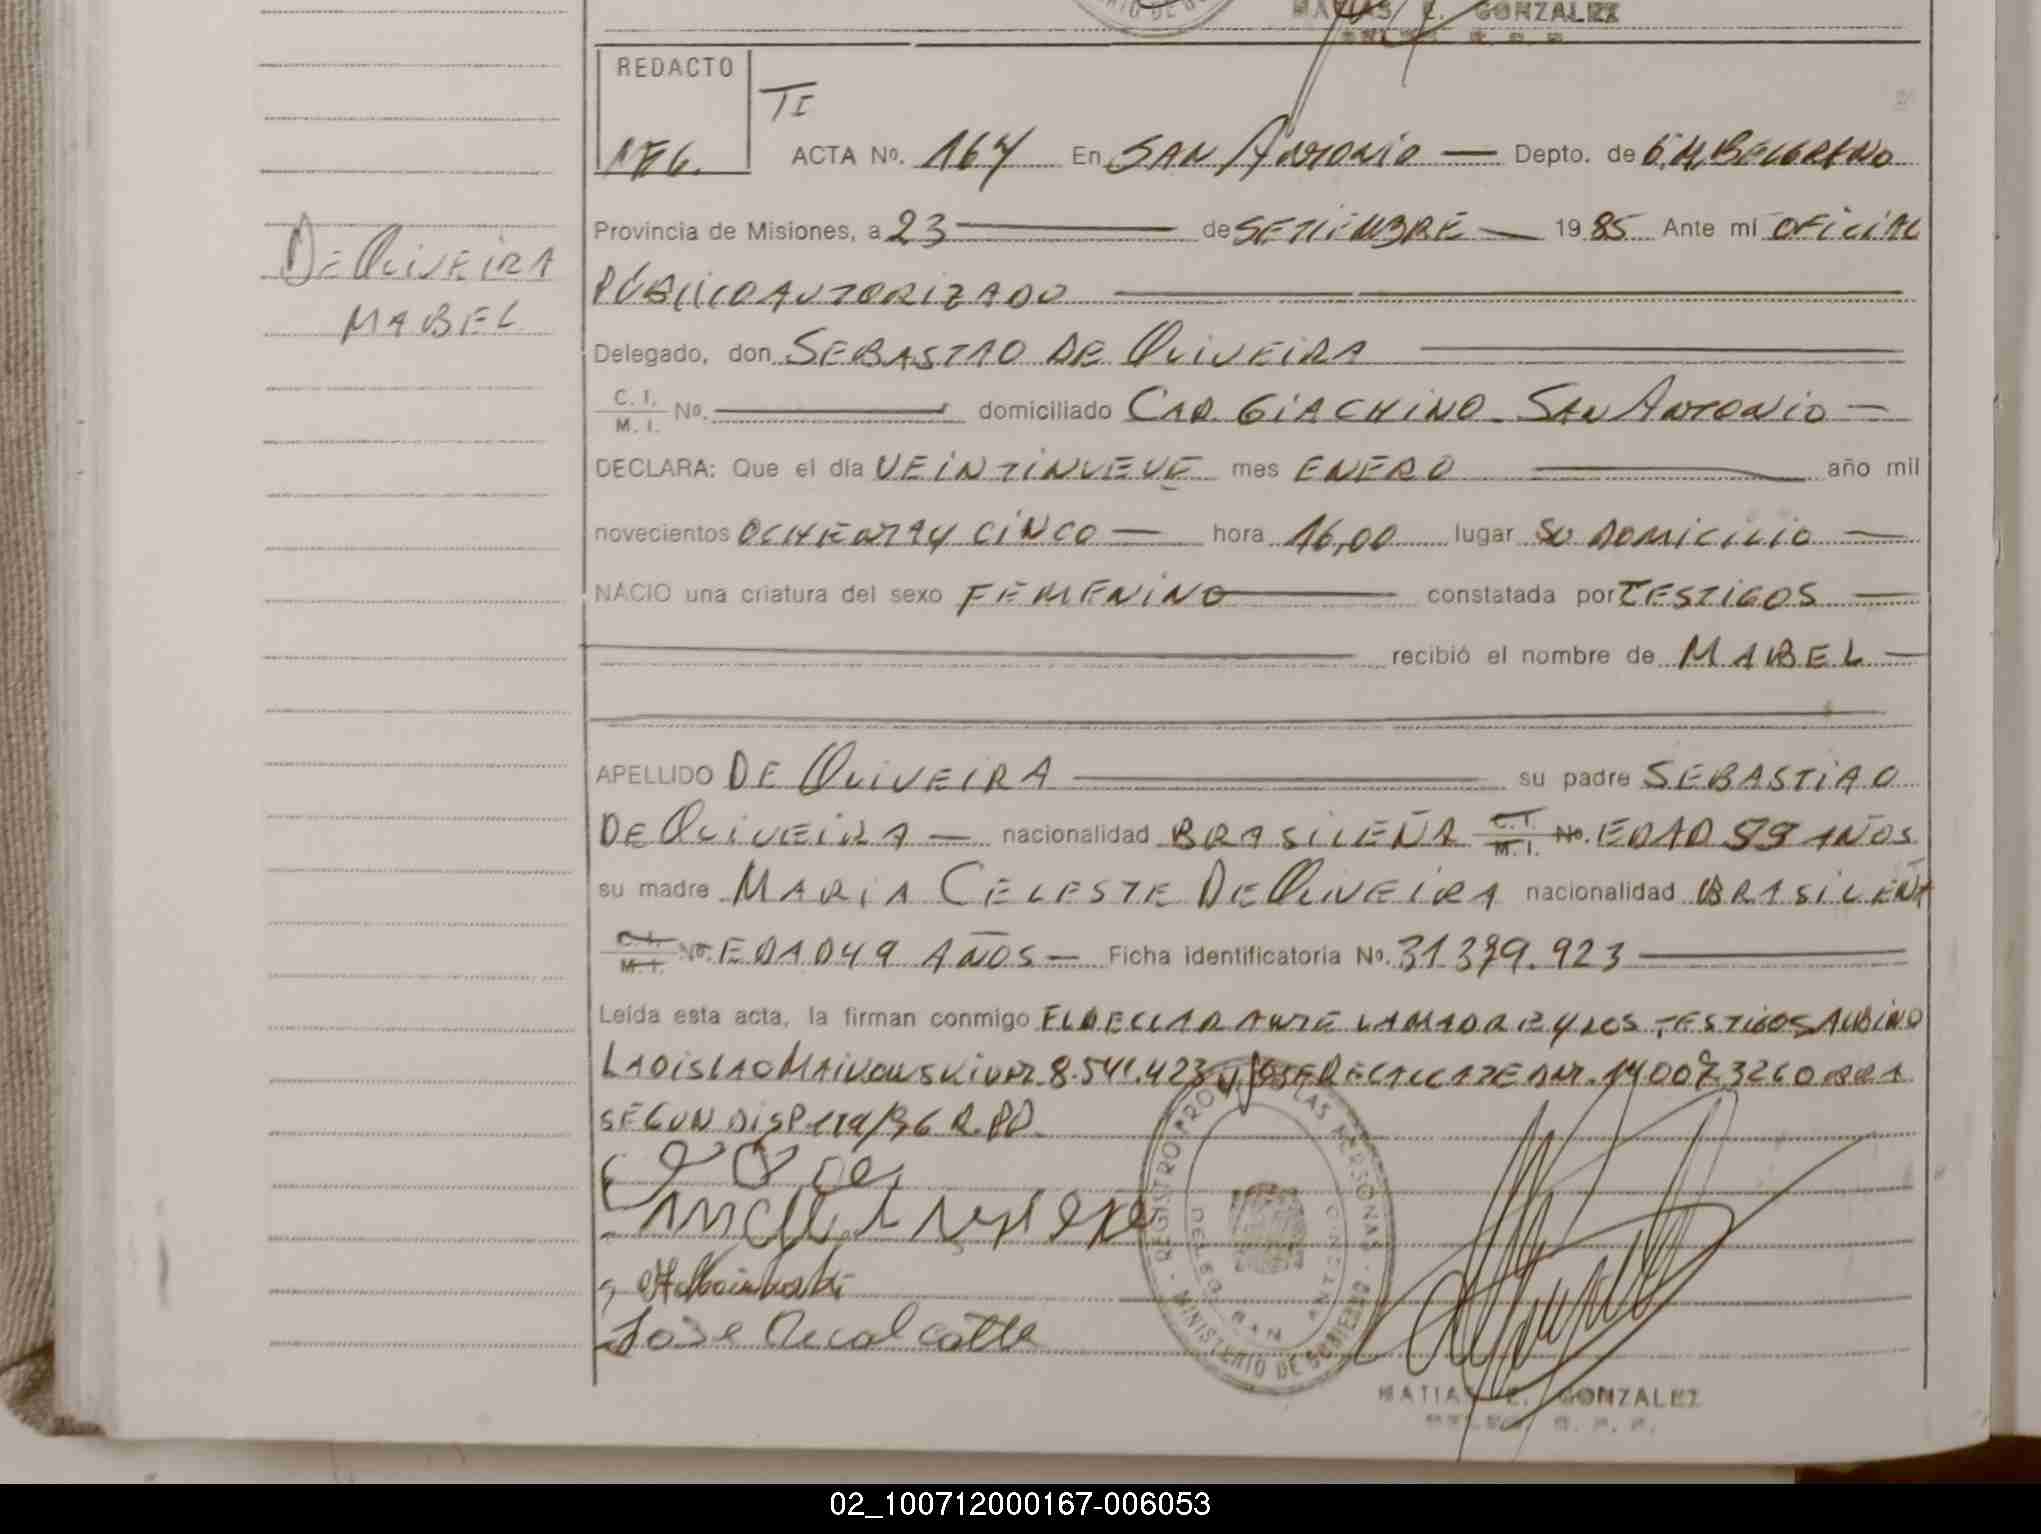 MATIAS E. GONZALEZ
REDACTO
TI
MEG.
ACTA No. 167 En SAN ANTONIO — Depto. de G.M. BELGRANO
Provincia de Misiones, a 23 — de SETIEMBRE — 1985 Ante mí OFICIAL
PÚBLICO AUTORIZADO
DE OLIVEIRA
MABEL
Delegado, don SEBASTIAO DE OLIVEIRA
C. I.
M. I. No. — domiciliado CAP. GIACHINO - SAN ANTONIO —
DECLARA: Que el día VEINTINUEVE mes ENERO — año mil
novecientos OCHENTA Y CINCO — hora 16,00 lugar SU DOMICILIO —
NACIO una criatura del sexo FEMENINO — constatada por TESTIGOS —
recibió el nombre de MABEL —
APELLIDO DE OLIVEIRA — su padre SEBASTIAO
DE OLIVEIRA — nacionalidad BRASILEÑA C. I. M. I. No. EDAD 59 AÑOS
su madre MARIA CELESTE DE OLIVEIRA nacionalidad BRASILEÑA
C. I. M. I. No. EDAD 49 AÑOS — Ficha identificatoria No. 31.379.923 —
Leída esta acta, la firman conmigo EL DECLARANTE LA MADRE Y LOS TESTIGOS ALBINO
LADISLAO MAIKOWSKI DNI. 8.541.423 y JOSE RECALCATE DNI.
SEGUN DISP
Jose Recalcatte
REGISTRO PROV. DE LAS PERSONAS
MINISTERIO DE GOBIERNO
DELEG. SAN ANTONIO
MATIAS E. GONZALEZ
02_100712000167-006053